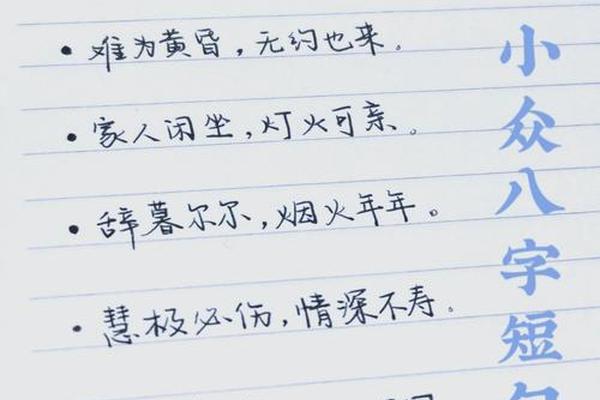 难为黄昏，无约也来。
家人闲坐，灯火可亲。
辞暮尔尔，烟火年年。
慧极必伤，情深不寿。
小众八字短